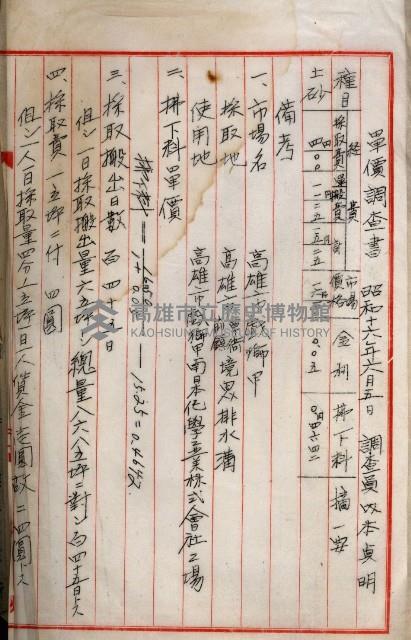 單價調查書　昭和十六年六月五日　調查員 坂本貞明
種目　經費　市場價格　金利　拂下料　摘要
採取費　運搬費　計
土砂　四、〇〇　一一、二五　一五、二五　〇、〇〇五　〇、四六四二
備考
一、市場名　高雄市戲獅甲
採取地　高雄市　境界排水溝
使用地　高雄市戲獅甲南日本化學工業株式會社工場
二、拂下料單價
15.25=0.4642
三、採取搬出日數　百四十五日
但シ一日採取搬出量六五坪ニシ總量八六八五坪ニ對シ百四十五日トス
四、採取費　一立坪ニ付　四圓
但シ一人一日採取量四分ノ一立坪日人賃金壱圓故ニ四圓トス
高雄市立歷史博物館
KAOHSIUNG MUSEUM OF HISTORY